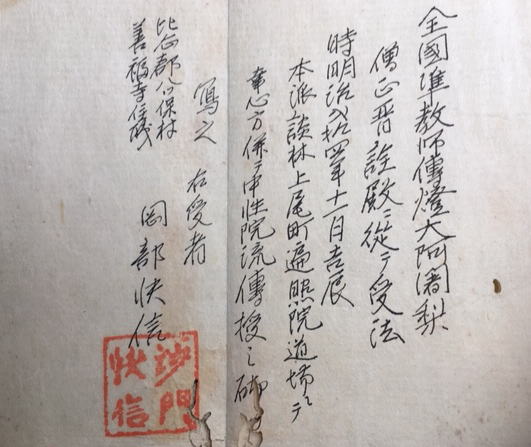 全國準教師傳燈大阿闍梨
僧正晋詮殿ニ從テ受法
時明治拾四年十一月吉辰
本派談林上尾町遍照院道場ニテ
幸心方併ニ中性院流傳授之砌
寫之 右受者
比企郡八ツ保村
善福寺住職
岡部快信
沙門
快信